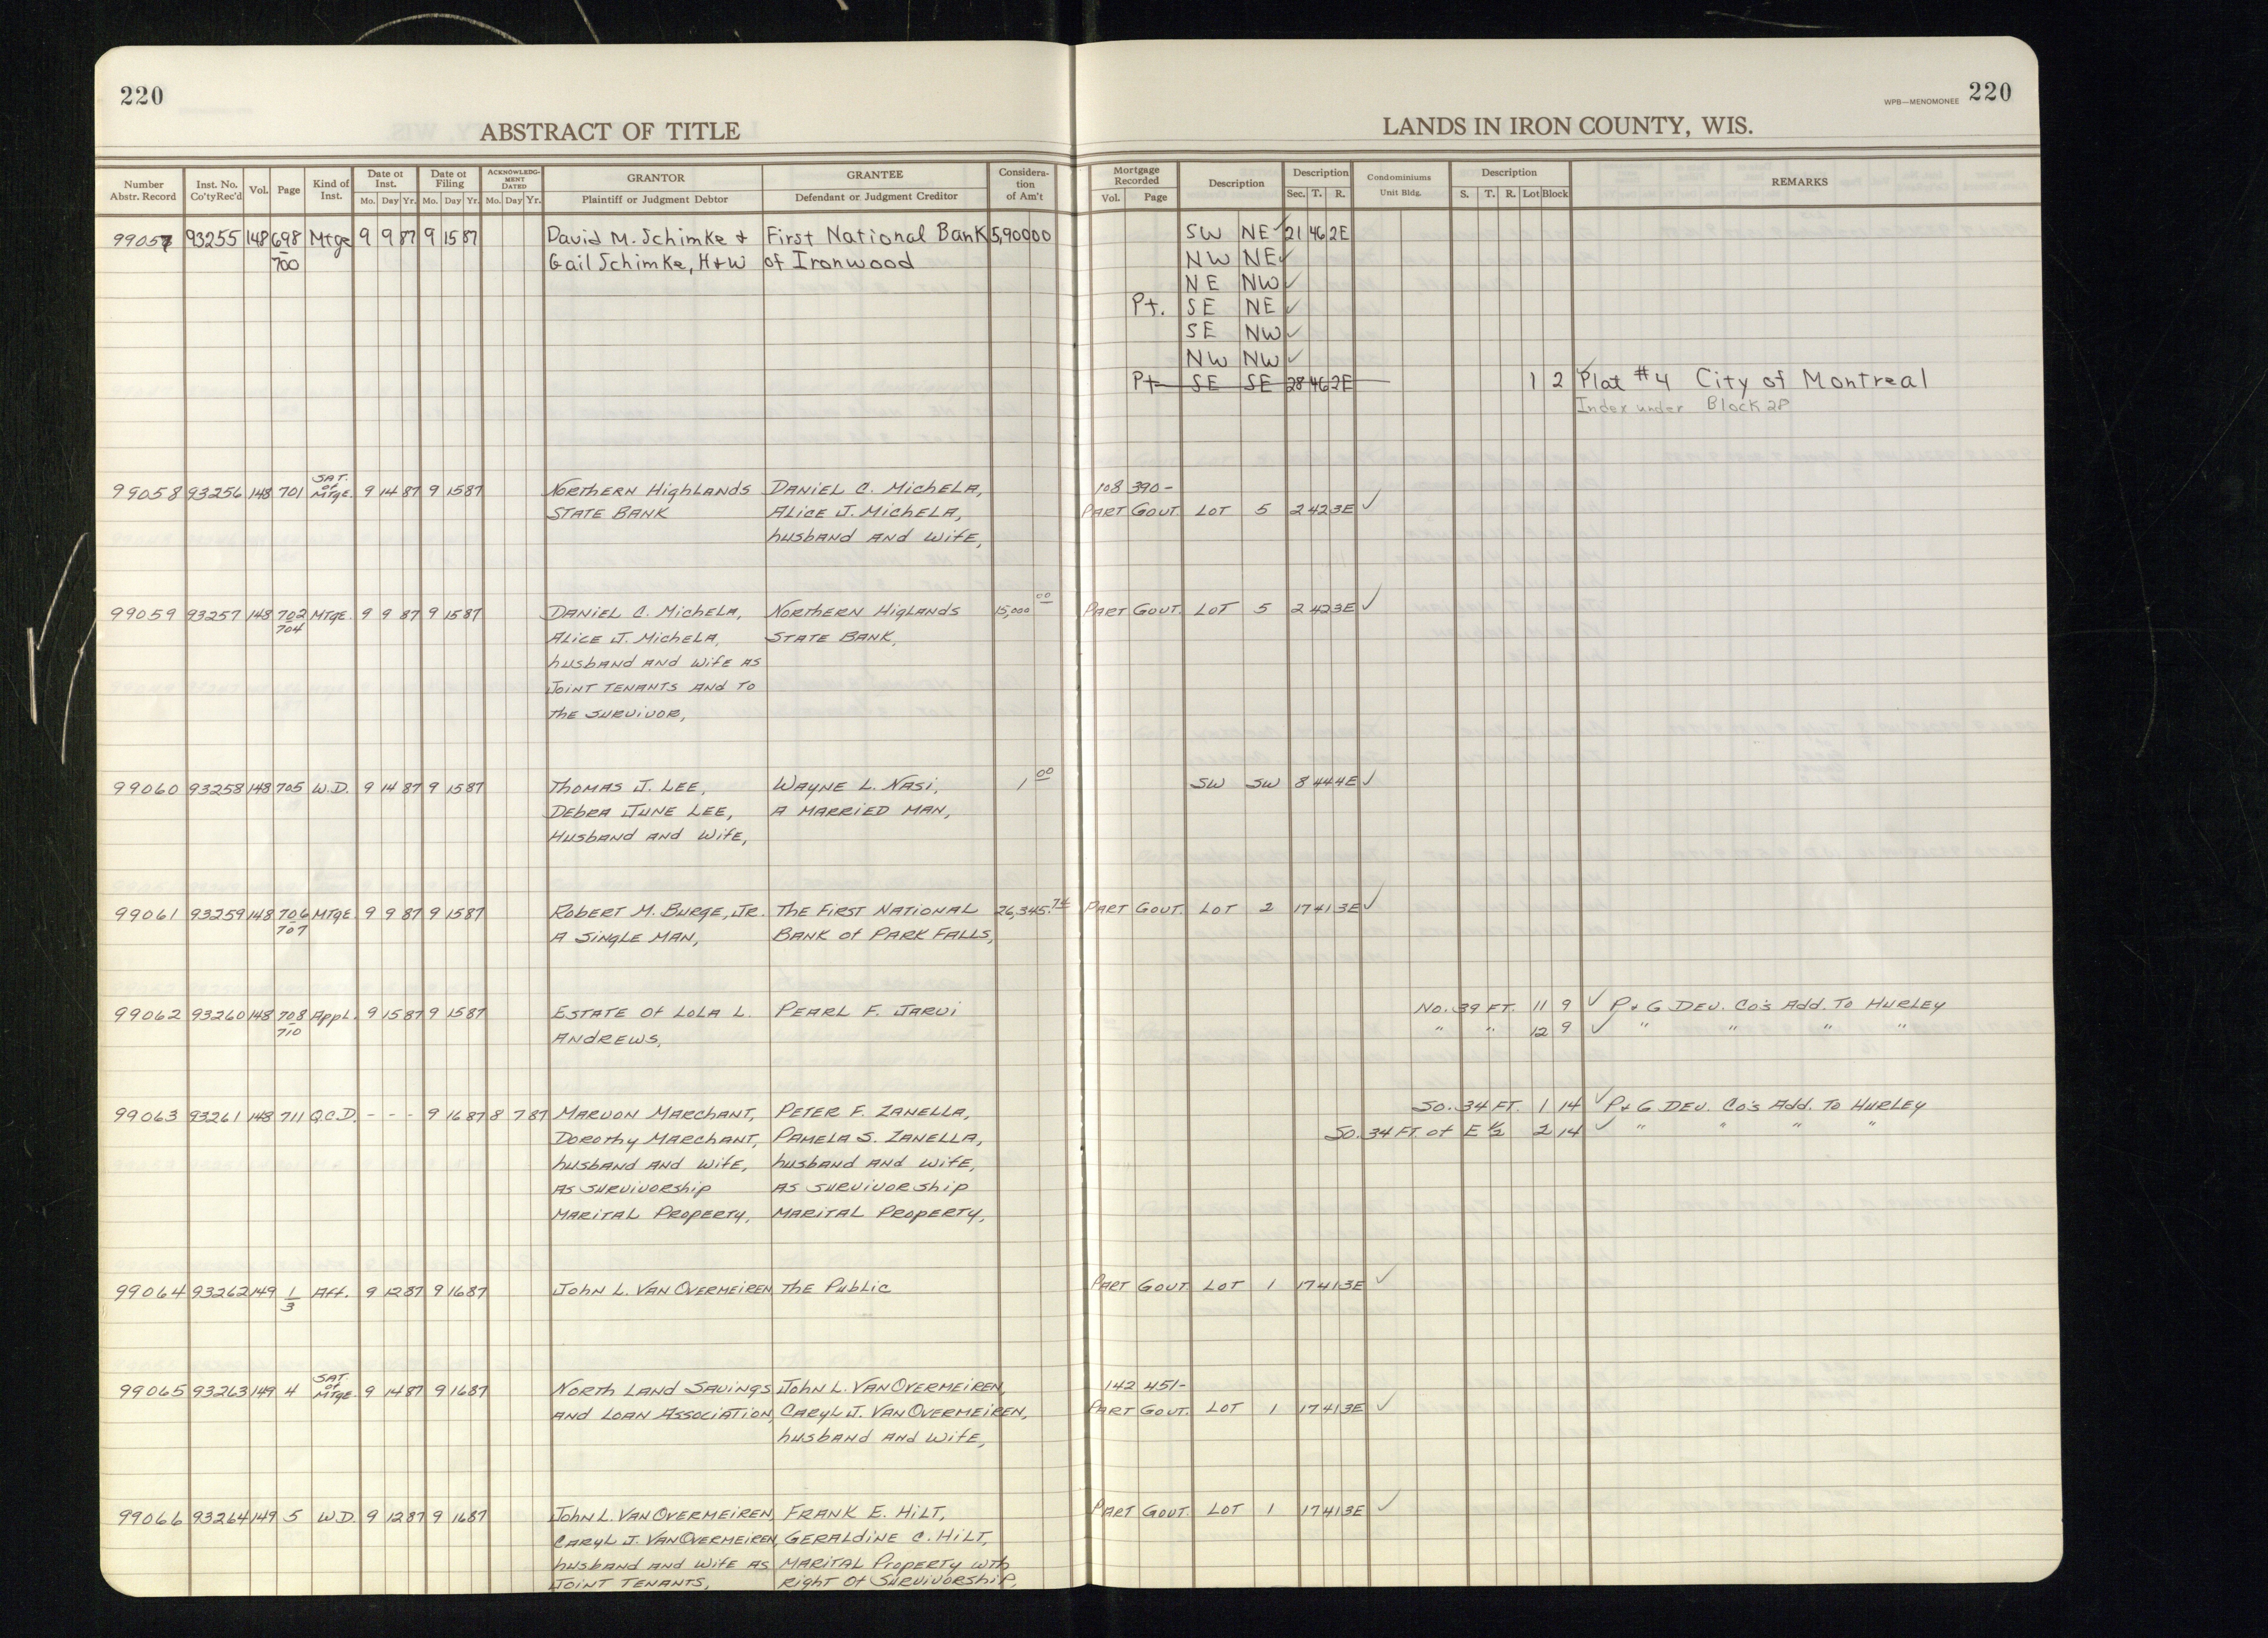 220
220
WPB—MENOMONEE
ABSTRACT OF TITLE
LANDS IN IRON COUNTY, WIS.
Number Abstr. Record | Inst. No. Co'ty Rec'd | Vol. | Page | Kind of Inst. | Date of Inst. Mo. Day Yr. | Date of Filing Mo. Day Yr. | ACKNOWLEDGMENT DATED Mo. Day Yr. | GRANTOR Plaintiff or Judgment Debtor | GRANTEE Defendant or Judgment Creditor | Consideration of Am't | Mortgage Recorded Vol. Page | Description | Description Sec. T. R. | Condominiums Unit Bldg. | Description S. T. R. Lot Block | REMARKS
99057 93255 148 698 Mtge 9 9 87 9 15 87 David M. Schimke & First National Bank 5,900 00 SW NE ✓ 21 46 2E
700 Gail Schimke, H+W of Ironwood NW NE ✓
NE NW ✓
Pt. SE NE ✓
SE NW ✓
NW NW ✓
Pt SE SE 28 46 2E 1 2 Plat #4 City of Montreal
Index under Block 28
99058 93256 148 701 SAT. of MTGE. 9 14 87 9 15 87 NORTHERN HIGHLANDS DANIEL C. MICHELA, 108 390-
STATE BANK ALICE J. MICHELA, PART GOVT. LOT 5 2 42 3E ✓
husband AND WIFE,
99059 93257 148 702 MTGE. 9 9 87 9 15 87 DANIEL C. MICHELA, NORTHERN HIGLANDS 15,000 00 PART GOVT. LOT 5 2 42 3E ✓
704 ALICE J. MICHELA, STATE BANK,
husband AND WIFE AS
JOINT TENANTS AND TO
THE SURVIVOR,
99060 93258 148 705 W.D. 9 14 87 9 15 87 THOMAS J. LEE, WAYNE L. NASI, 1 00 SW SW 8 44 4E ✓
DEBRA JUNE LEE, A MARRIED MAN,
HUSBAND AND WIFE,
99061 93259 148 706 MTGE. 9 9 87 9 15 87 ROBERT M. BURGE, JR. THE FIRST NATIONAL 26,345.74 PART GOVT. LOT 2 17 41 3E ✓
707 A SINGLE MAN, BANK OF PARK FALLS,
99062 93260 148 708 APPL. 9 15 87 9 15 87 ESTATE OF LOLA L. PEARL F. JARVI No. 39 FT. 11 9 ✓ P+G DEV. Co's ADD. TO HURLEY
710 ANDREWS, " " 12 9 ✓ " " " "
99063 93261 148 711 Q.C.D. - - - 9 16 87 8 7 87 MARVON MARCHANT, PETER F. ZANELLA, So. 34 FT. 1 14 ✓ P+G DEV. Co's ADD. TO HURLEY
DOROTHY MARCHANT, PAMELA S. ZANELLA, So. 34 FT. of E ½ 2 14 ✓ " " " "
husband AND WIFE, husband AND WIFE,
AS SURVIVORSHIP AS SURVIVORSHIP
MARITAL PROPERTY, MARITAL PROPERTY,
99064 93262 149 1 AFF. 9 12 87 9 16 87 JOHN L. VAN OVERMEIREN THE PUBLIC PART GOVT LOT 1 17 41 3E ✓
3
99065 93263 149 4 SAT of MTGE. 9 14 87 9 16 87 NORTH LAND SAVINGS JOHN L. VAN OVERMEIREN, 142 451-
AND LOAN ASSOCIATION, CARYL J. VAN OVERMEIREN, PART GOVT. LOT 1 17 41 3E ✓
husband AND WIFE,
99066 93264 149 5 W.D. 9 12 87 9 16 87 JOHN L. VAN OVERMEIREN, FRANK E. HILT, PART GOVT. LOT 1 17 41 3E ✓
CARYL J. VAN OVERMEIREN, GERALDINE C. HILT,
husband AND WIFE AS MARITAL PROPERTY WTH
JOINT TENANTS, RIGHT OF SURVIVORSHIP,